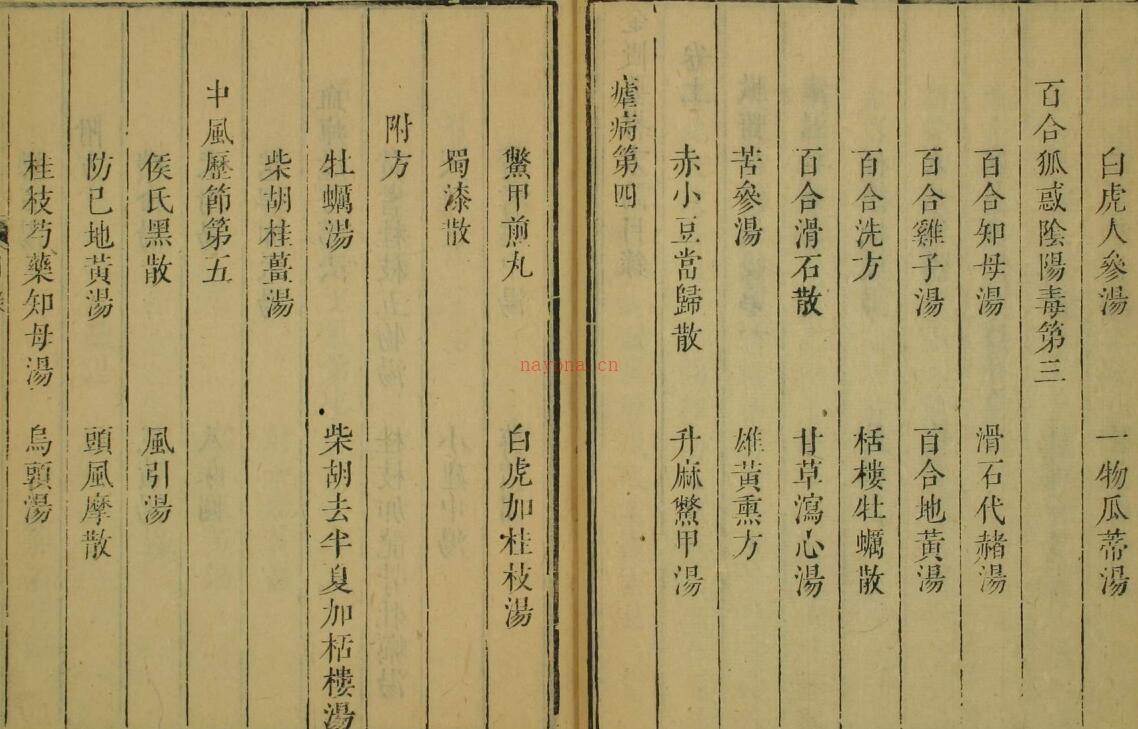 白虎人參湯　一物瓜蒂湯
百合狐惑陰陽毒第三
百合知母湯　滑石代赭湯
百合雞子湯　百合地黃湯
百合洗方　栝樓牡蠣散
百合滑石散　甘草瀉心湯
苦參湯　雄黃熏方
赤小豆當歸散　升麻鱉甲湯
瘧病第四
鱉甲煎丸　白虎加桂枝湯
蜀漆散
附方
牡蠣湯　柴胡去半夏加栝樓湯
柴胡桂薑湯
中風歷節第五
侯氏黑散　風引湯
防己地黃湯　頭風摩散
桂枝芍藥知母湯　烏頭湯
nayona.cn